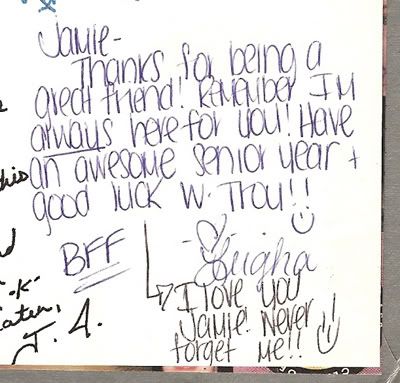 Jamie-
Thanks for being a
great friend! Remember I'm
always here for you! Have
an awesome senior year +
good luck w. Troy!!
BFF
I love you
Jamie! Never
forget me!!
this
-K-
J. A.